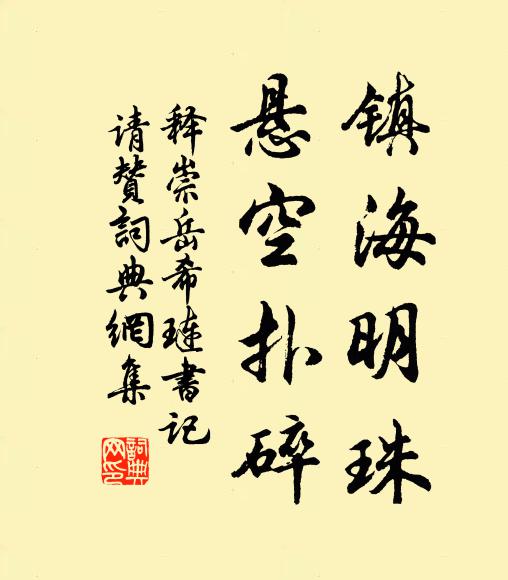 镇海明珠
悬空扑碎
释崇岳希琏书记
请赞词典网集
词典网印